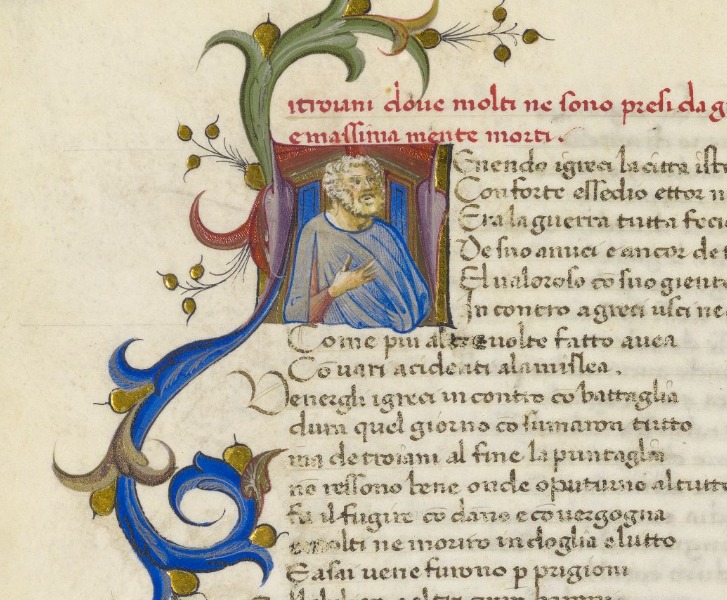 itroiani doue molti ne sono presi da g
e massima mente morti.
Guendo igreci la citta ist
Con forte essedio ettor n
Era la guerra tutta feci
De suo amici e ancor de
El ualoroso co suo giente
In contro a greci usci ne
Come piu altre uolte fatto auea
Co uari acidenti alamislea.
Venergli igreci in contro co battaglia
dura quel giorno co sumaron tutto
ma de troiani al fine la puntaglia
no ressono bene onde oputuno al tutto
fu il fugire co dano e co uergogna
e molti ne moriro in doglia e lutto
E asai uene furono p prigioni